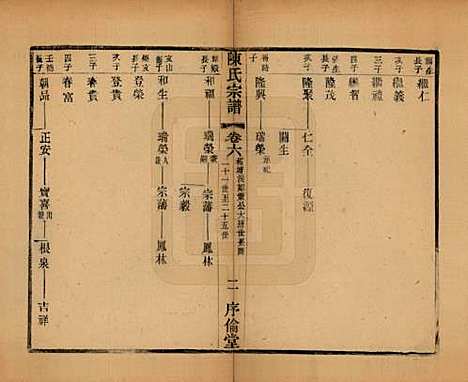 長子 繼仁
次子 繼義
三子 繼禮
次子 隆茂
次子 隆聚 仁全 復源
關生
長子 隆興 瑞榮
陳氏宗譜
卷六
二十一世至二十五世
二
序倫堂
長子 和福 瑞榮 宗藩 鳳林
宗毅
和生 瑞榮 宗藩 鳳林
長子 登榮
次子 登貴
三子 春貴
四子 春富
長子 朝品 正安 寶喜 根泉 吉祥